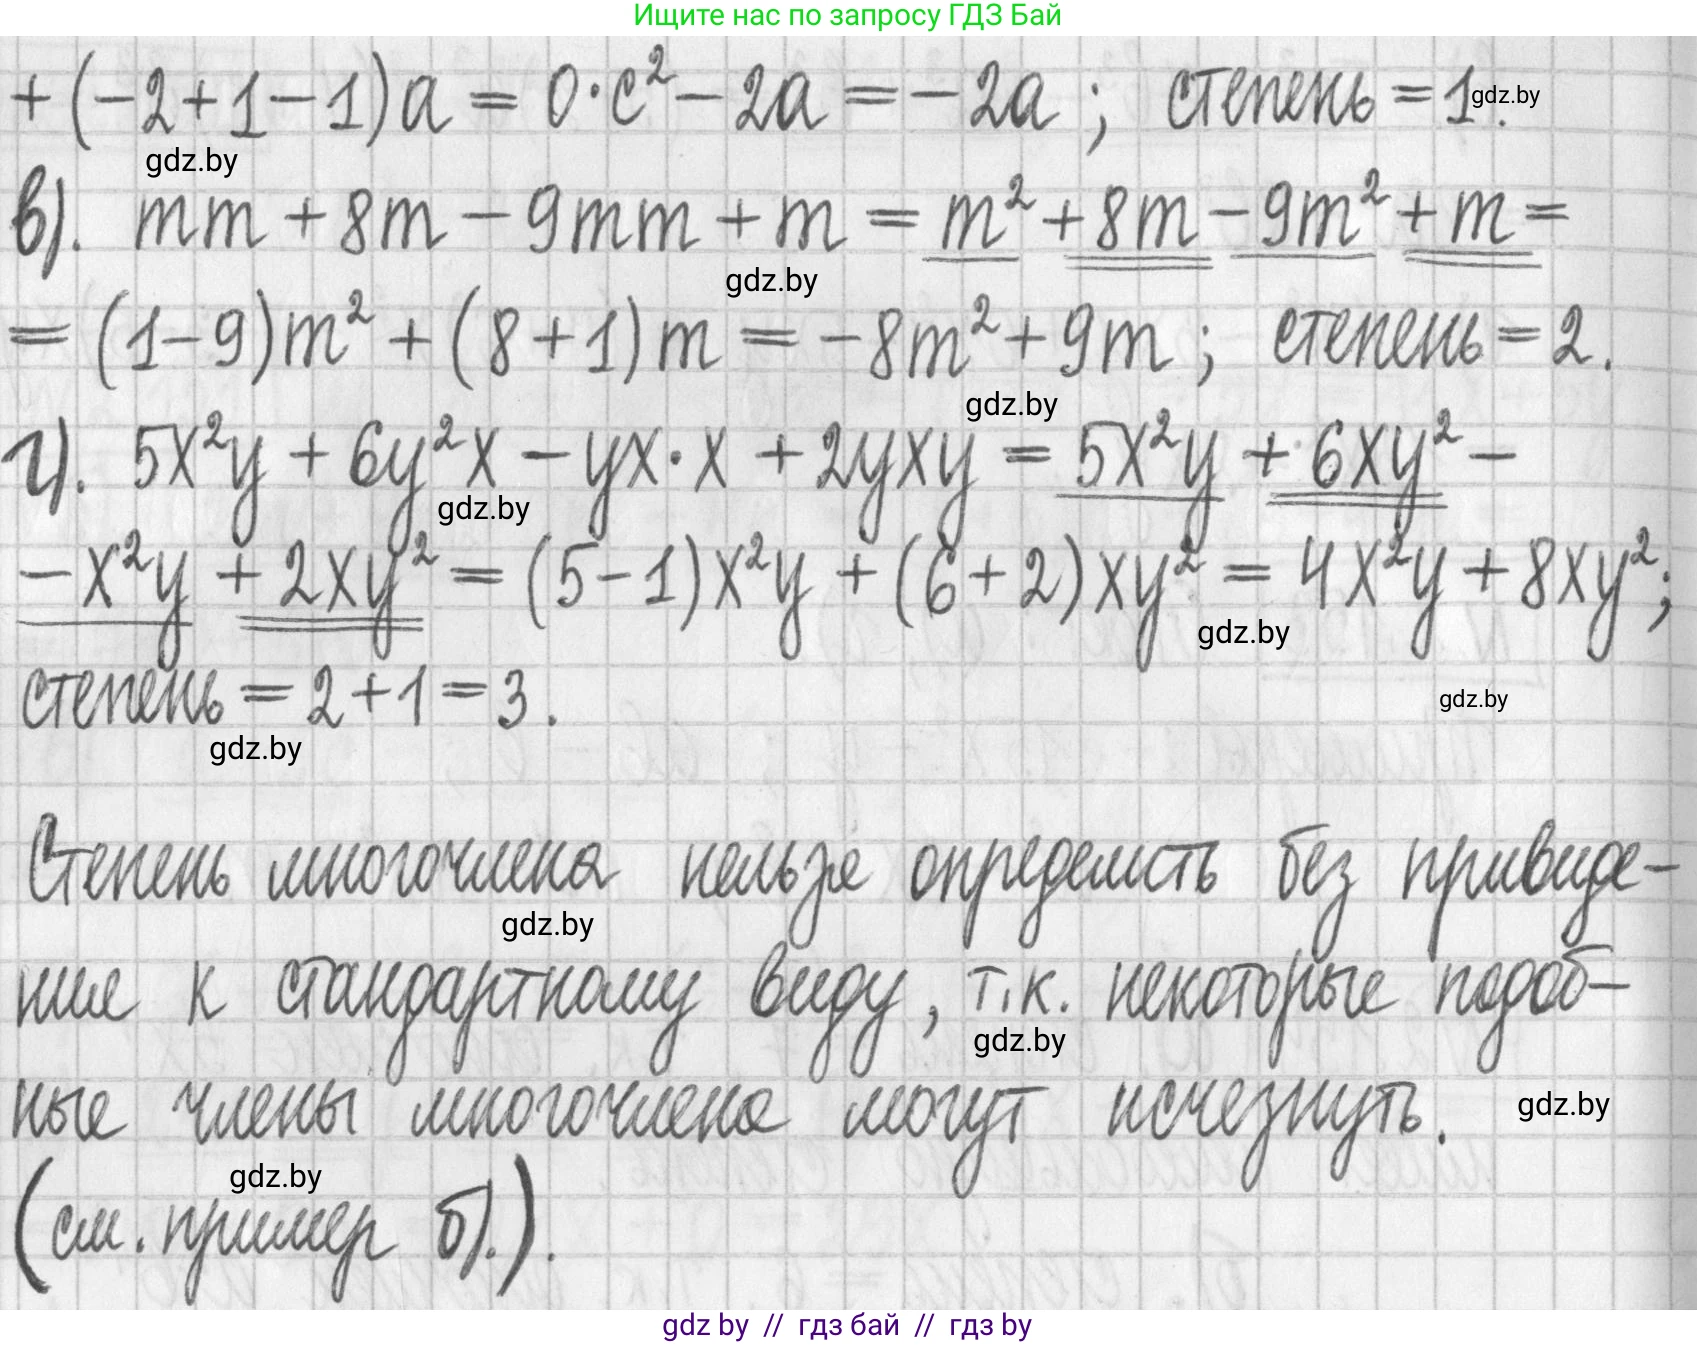 Ищите нас по запросу ГДЗ Бай
+(-2+1-1)a = 0·c² - 2a = -2a ; степень = 1.
gdz.by
gdz.by
в). mm + 8m - 9mm + m = m² + 8m - 9m² + m =
gdz.by
= (1-9)m² + (8+1)m = -8m² + 9m ; степень = 2.
gdz.by
г). 5x²y + 6y²x - yx·x + 2yxy = 5x²y + 6xy² -
gdz.by
- x²y + 2xy² = (5-1)x²y + (6+2)xy² = 4x²y + 8xy²;
gdz.by
степень = 2+1 = 3.
gdz.by
gdz.by
Степень многочлена нельзя определить без привиде-
gdz.by
ния к стандартному виду, т.к. некоторые подоб-
gdz.by
ные члены многочлена могут исчезнуть.
gdz.by
gdz.by
(см. пример б).).
gdz.by // гдз бай // гдз by